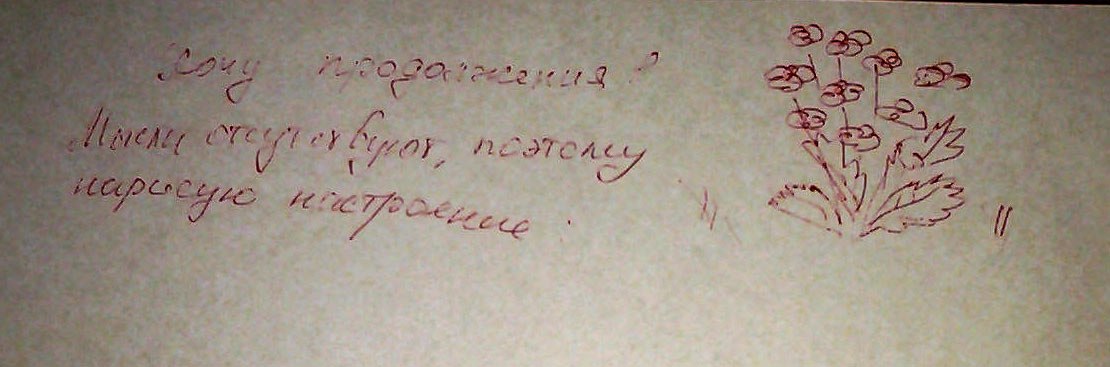 Хочу продолжения?
Мысли отсутствуют, поэтому
нарисую настроение: